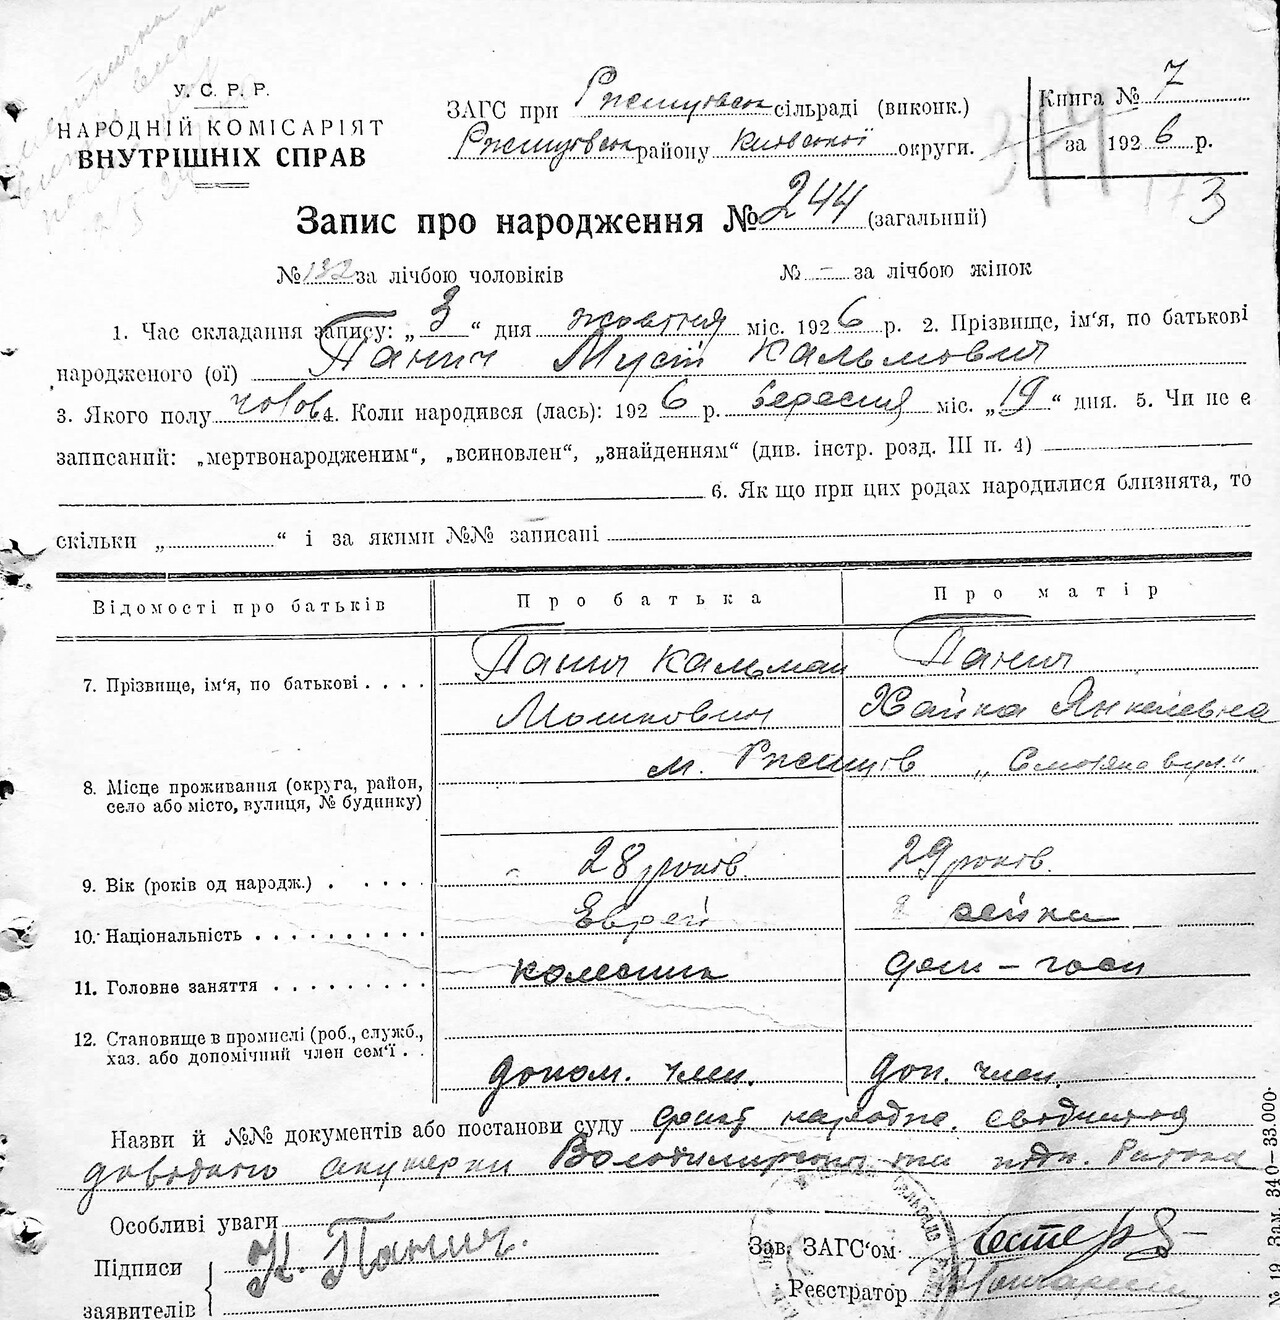 У. С. Р. Р.
НАРОДНІЙ КОМІСАРІЯТ
ВНУТРІШНІХ СПРАВ
ЗАГС при Ржищівськ сільраді (виконк.)
Ржищівськ району Київської округи.
Книга № 7
за 1926 р.
374
173
Запис про народження № 244 (загальний)
№ 132 за лічбою чоловіків № - за лічбою жінок
1. Час складання запису: „3“ дня жовтня міс. 1926 р. 2. Прізвище, ім‘я, по батькові
народженого (ої) Панич Мусій Кальмович
3. Якого полу чолов. 4. Коли народився (лась): 1926 р. вересня міс. „19“ дня. 5. Чи не є
записаний: „мертвонародженим“, „всиновлен“, „знайденням“ (див. інстр. розд. III п. 4)
6. Якщо при цих родах народилися близнята, то
скільки „ “ і за якими №№ записані
Відомості про батьків Про батька Про матір
7. Прізвище, ім‘я, по батькові Панич Кальман Панич
Мошкович Хайка Янкелевна
8. Місце проживання (округа, район, село або місто, вулиця, № будинку) м. Ржищів
9. Вік (років од народж.) 28 років. 29 років.
10. Національність Еврей -ейка
11. Головне заняття колесник дом-госп
12. Становище в промислі (роб., служб., хаз. або допомічний член сем‘ї допом. член. доп. член.
Назви й №№ документів або постанови суду народж. свідчення
акушерки та
Особливі уваги
Підписи заявителів К. Панич.
Зав. ЗАГС‘ом
Реєстратор
№ 19 Зам. 340—33.000